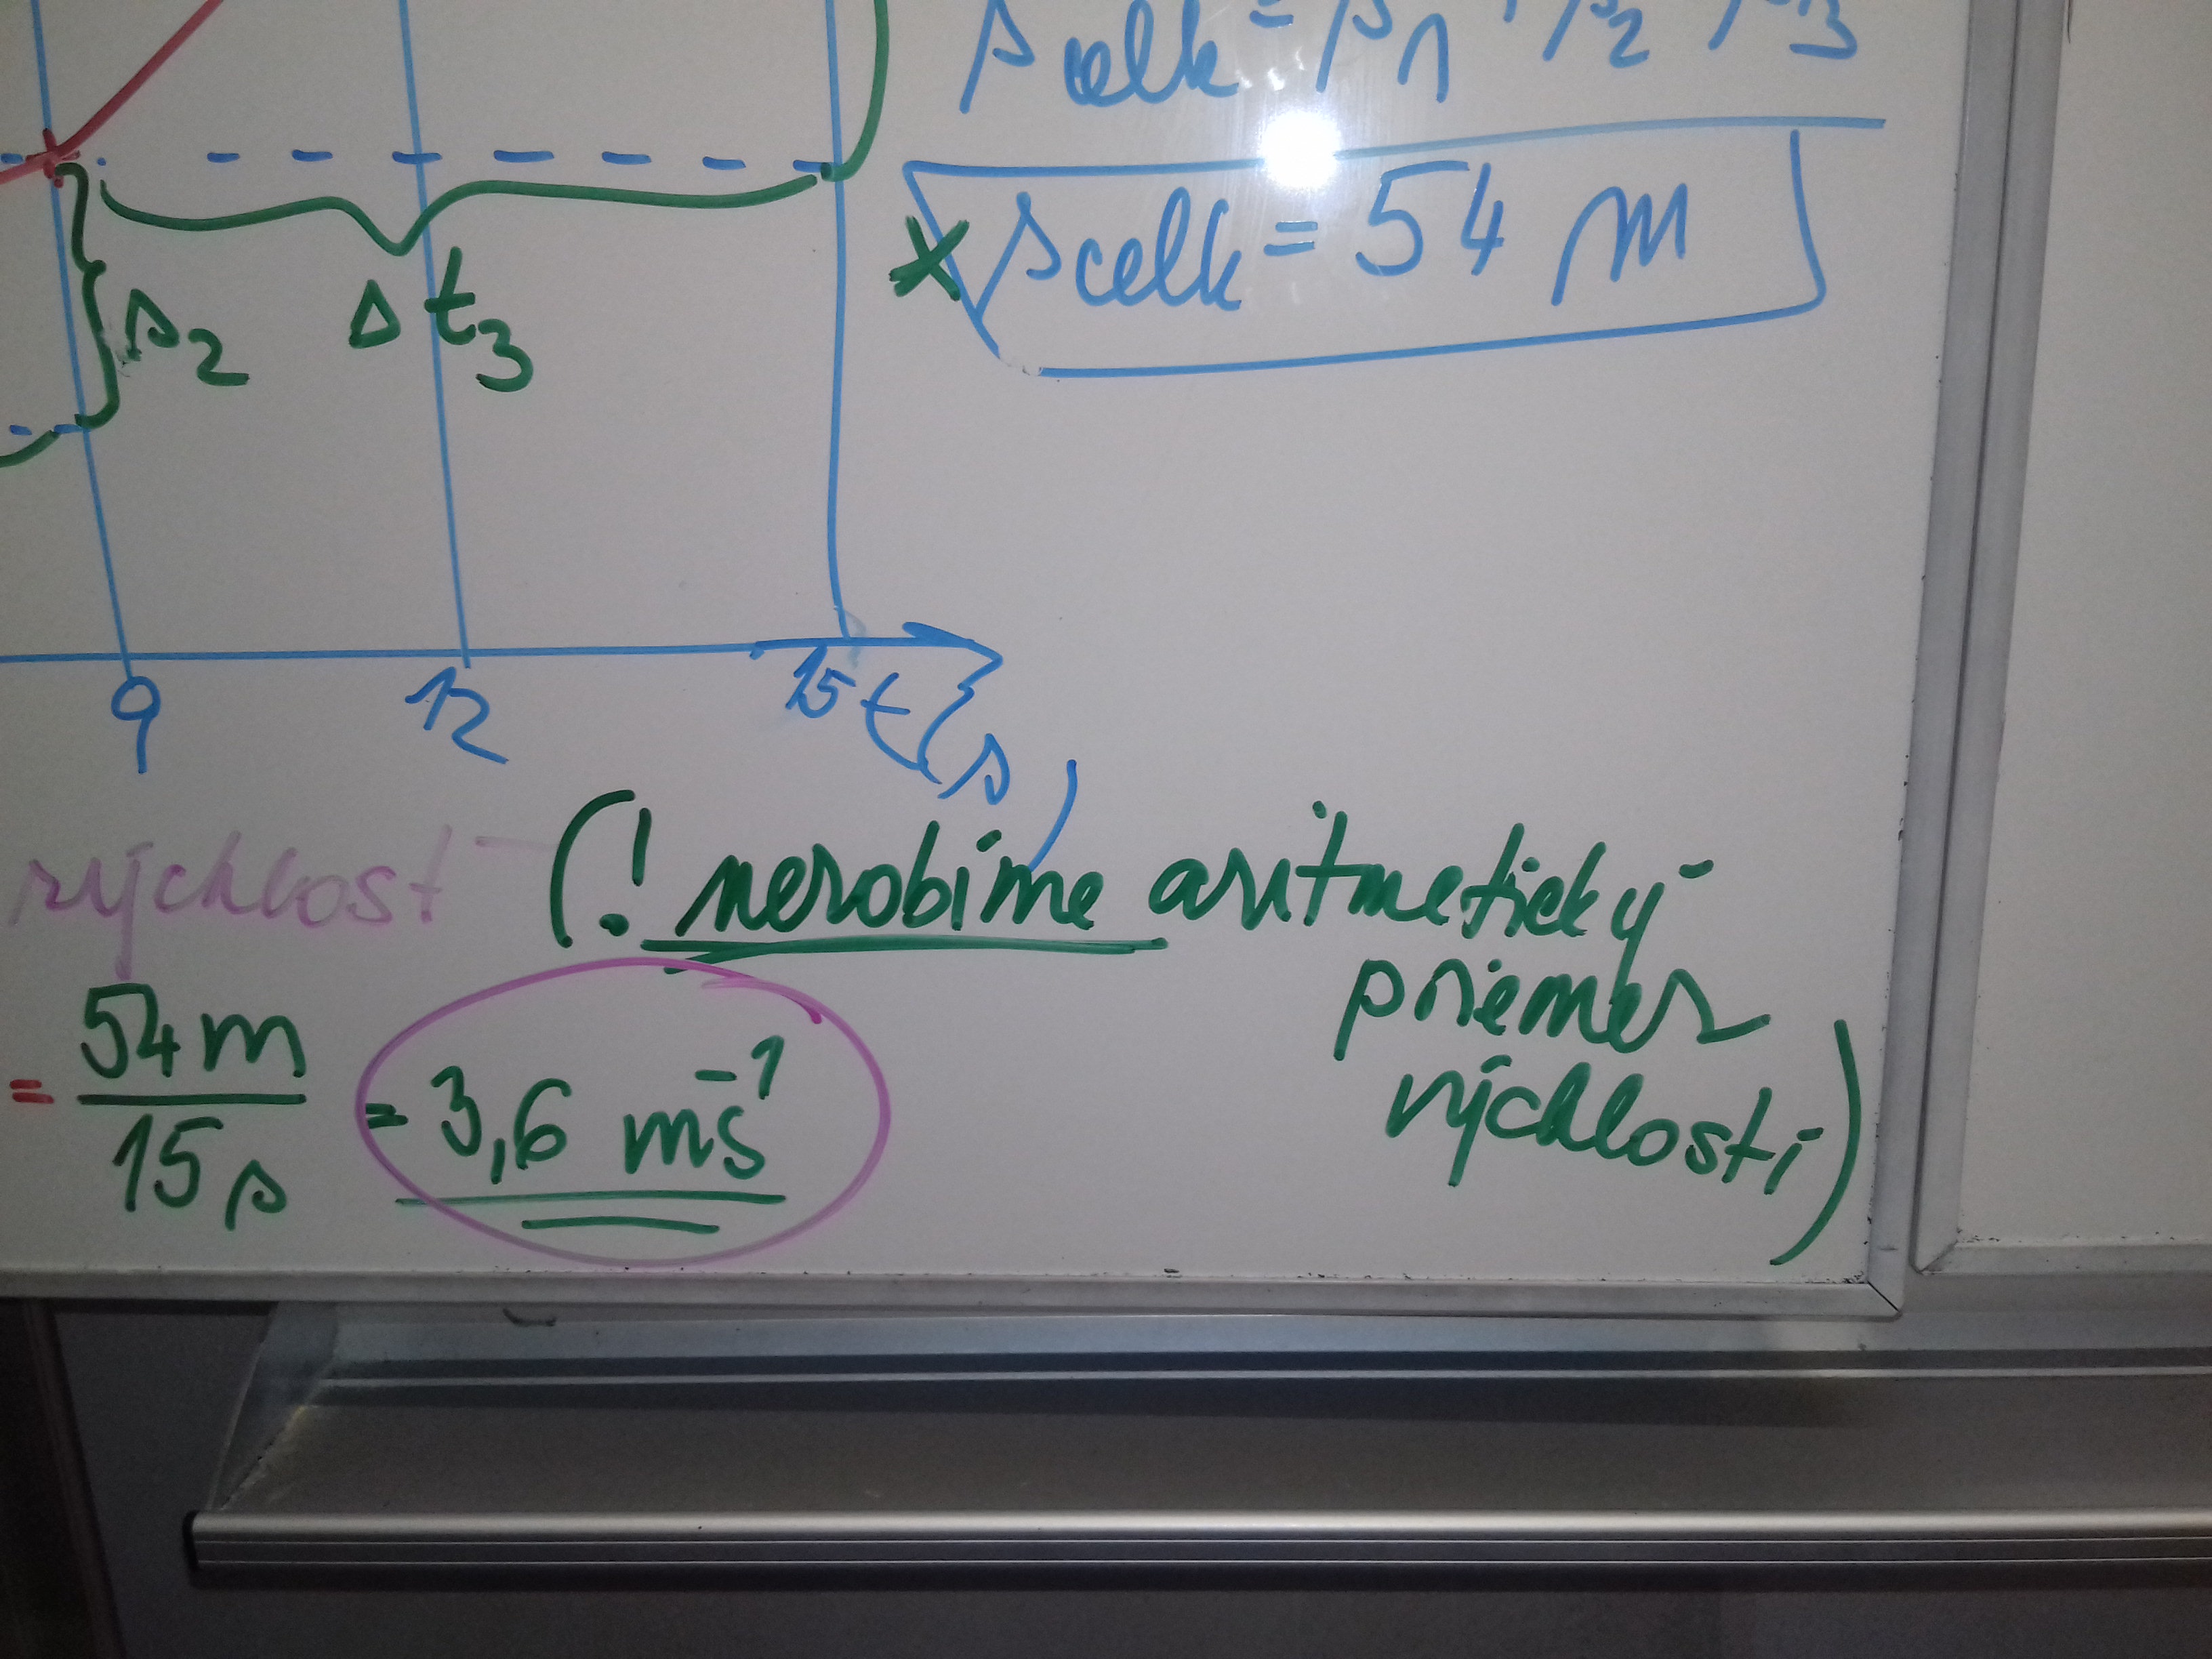 s celk = s1 + s2 + s3
x s celk = 54 m
s2
Δt3
9 12 15 t(s)
rýchlosť (! nerobíme aritmetický
priemer
rýchlostí)
= 54 m / 15 s = 3,6 ms⁻¹